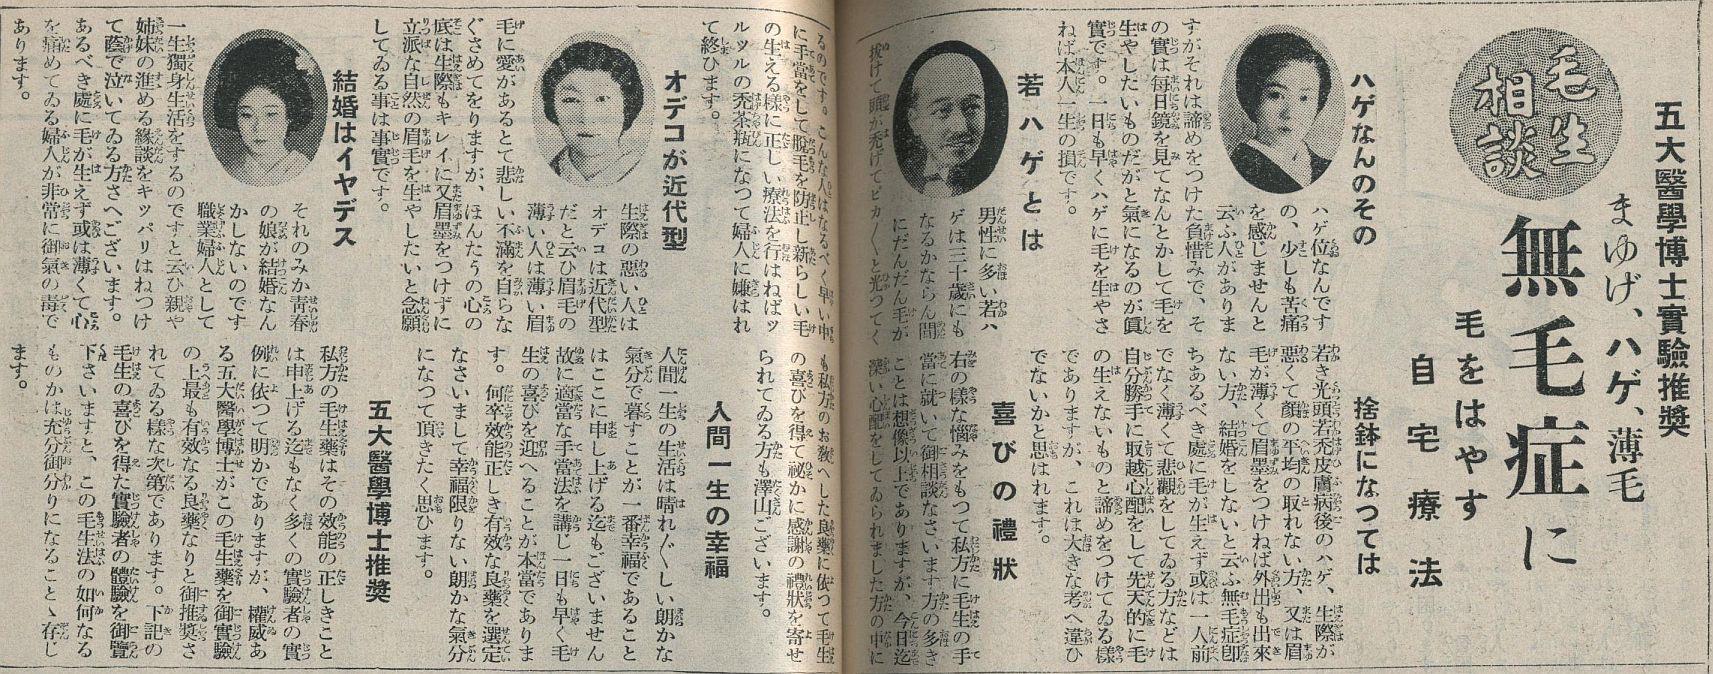 五大醫學博士實驗推奬
まゆげ、ハゲ、薄毛
毛生
相談
無毛症に
毛をはやす
自宅療法
ハゲなんのその
ハゲ位なんです
の、少しも苦痛
を感じませんと
云ふ人がありま
すがそれは諦めをつけた負惜みで、そ
の實は毎日鏡を見てなんとかして毛を
生やしたいものだがと氣になるのが眞
實です。一日も早くハゲに毛を生やさ
ねば本人一生の損です。
若ハゲとは
男性に多い若ハ
ゲは三十歳にも
なるかならん間
にだんだん毛が
拔けて頭が禿げてピカ〳〵と光つてく
るのです。こんな人はなるべく早い中
に手當をして脱毛を防止し新らしい毛
の生える樣に正しい療法を行はねばツ
ルツルの禿茶瓶になつて婦人に嫌はれ
て終ひます。
オデコが近代型
生際の惡い人は
オデコは近代型
だと云ひ眉毛の
薄い人は薄い眉
毛に愛があるとて悲しい不滿を自らな
ぐさめてをりますが、ほんたうの心の
底は生際もキレイに又眉墨をつけずに
立派な自然の眉毛を生やしたいと念願
してゐる事は事實です。
結婚はイヤデス
それのみか靑春
の娘が結婚なん
かしないのです
職業婦人として
一生獨身生活をするのですと云ひ親や
姉妹の進める緣談をキッパリはねつけ
て蔭で泣いてゐる方さへございます。
あるべき處に毛が生えず或は薄くて心
を痛めてゐる婦人が非常に御氣の毒で
あります。
捨鉢になつては
若き光頭若禿皮膚病後のハゲ、生際が
惡くて顏の平均の取れない方、又は眉
毛が薄くて眉墨をつけねば外出も出來
ない方、結婚をしないと云ふ無毛症卽
ちあるべき處に毛が生えず或は一人前
でなく薄くて悲觀をしてゐる方などは
自分勝手に取越心配をして先天的に毛
の生えないものと諦めをつけてゐる樣
でありますが、これは大きな考へ違ひ
でないかと思はれます。
喜びの禮狀
右の樣な惱みをもつて私方に毛生の手
當に就いて御相談なさいます方の多き
ことは想像以上でありますが、今日迄
深い心配をしてゐられました方の中に
も私方のお敎へした良藥に依つて毛生
の喜びを得て祕かに感謝の禮狀を寄せ
られてゐる方も澤山ございます。
人間一生の幸福
人間一生の生活は晴れ〴〵しい朗かな
氣分で暮すことが一番幸福であること
はここに申し上げる迄もございません
故に適當な手當法を講じ一日も早く毛
生の喜びを迎へることが本當でありま
す。何卒效能正しき有效な良藥を選定
なさいまして幸福限りない朗かな氣分
になつて頂きたく思ひます。
五大醫學博士推奬
私方の毛生藥はその效能の正しきこと
は申上げる迄もなく多くの實驗者の實
例に依つて明かでありますが、權威あ
る五大醫學博士がこの毛生藥を御實驗
の上最も有效なる良藥なりと御推奬さ
れてゐる樣な次第であります。下記の
毛生の喜びを得た實驗者の體驗を御覽
下さいますと、この毛生法の如何なる
ものかは充分御分りになることゝ存じ
ます。